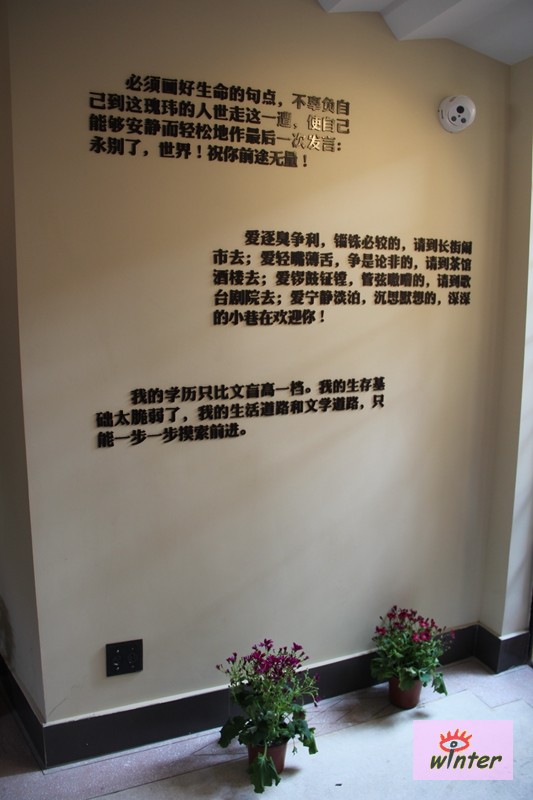 必须画好生命的句点，不辜负自
己到这瑰玮的人世走这一遭，使自己
能够安静而轻松地作最后一次发言：
永别了，世界！祝你前途无量！
爱逐臭争利，锱铢必较的，请到长街闹
市去；爱轻嘴薄舌，争是论非的，请到茶馆
酒楼去；爱锣鼓钲镗，管弦嗷嘈的，请到歌
台剧院去；爱宁静淡泊，沉思默想的，深深
的小巷在欢迎你！
我的学历只比文盲高一档。我的生存基
础太脆弱了，我的生活道路和文学道路，只
能一步一步摸索前进。
winter